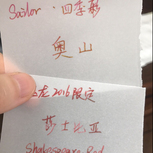 Sailor · 四季彩
奥山
2016限定
莎士比亚
Shakespeare Red